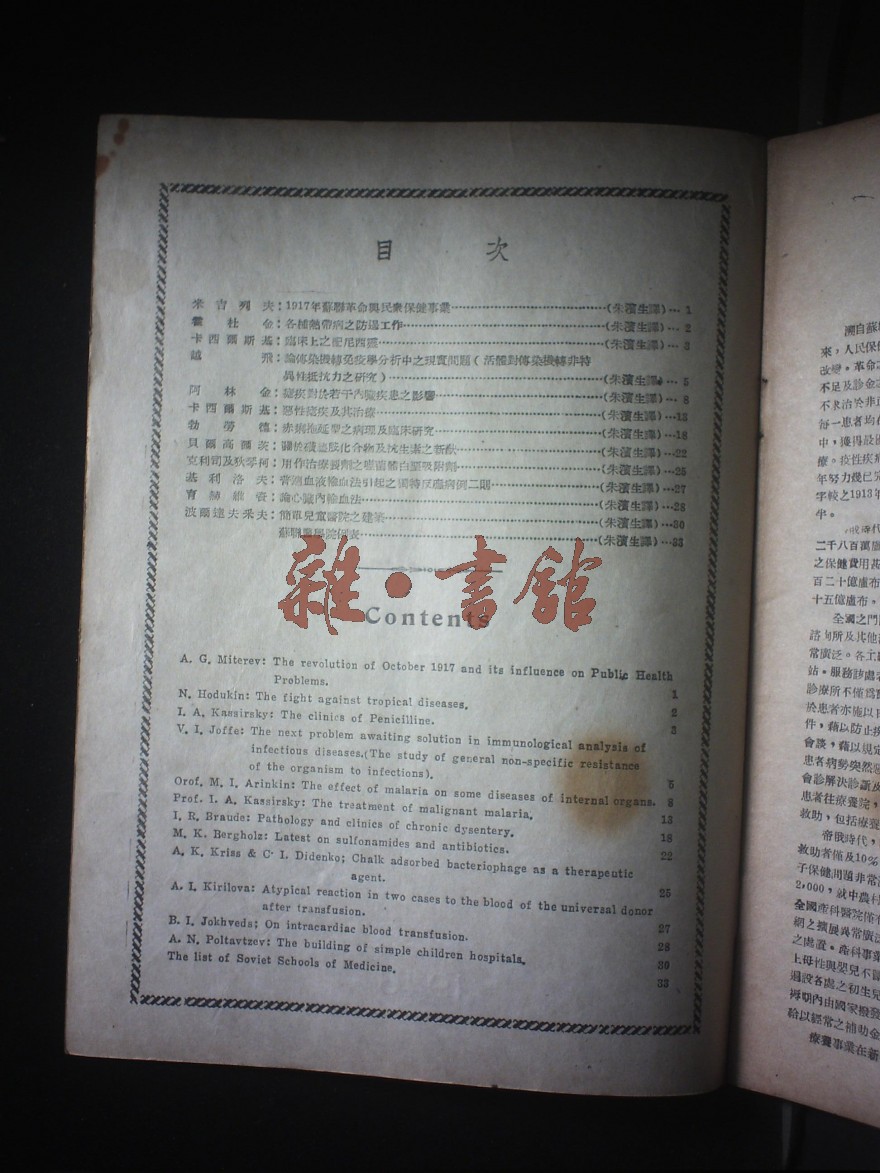 目 次
米吉列夫：1917年蘇聯革命與民衆保健事業…(朱濱生譯)…1
霍杜金：各種熱帶病之防遏工作…(朱濱生譯)…2
卡西爾斯基：臨床上之配尼西靈…(朱濱生譯)…3
越飛：論傳染機轉免疫學分析中之現實問題（活體對傳染機轉非特
異性抵抗力之研究）…(朱濱生譯)…5
阿林金：瘧疾對於若干內臟疾患之影響…(朱濱生譯)…8
卡西爾斯基：惡性瘧疾及其治療…(朱濱生譯)…13
勃勞德：赤痢拖延型之病理及臨床研究…(朱濱生譯)…18
貝爾高爾茨：關於磺胺化合物及抗生素之新獻…(朱濱生譯)…22
克利司及狄琴柯：用作治療製劑之噬菌體白堊吸附劑…(朱濱生譯)…25
基利洛夫：普遍血液輸血法引起之獨特反應病例二則…(朱濱生譯)…27
育赫維茲：論心臟內輸血法…(朱濱生譯)…28
波爾達夫采夫：簡單兒童醫院之建築…(朱濱生譯)…30
蘇聯醫學院個表…(朱濱生譯)…33
雜·書館
Contents
A. G. Miterev: The revolution of October 1917 and its influence on Public Health
Problems. 1
N. Hodukin: The fight against tropical diseases. 2
I. A. Kassirsky: The clinics of Penicilline. 3
V. I. Joffe: The next problem awaiting solution in immunological analysis of
infectious diseases.(The study of general non-specific resistance
of the organism to infections). 5
Orof. M. I. Arinkin: The effect of malaria on some diseases of internal organs. 8
Prof. I. A. Kassirsky: The treatment of malignant malaria. 13
I. R. Braude: Pathology and clinics of chronic dysentery. 18
M. K. Bergholz: Latest on sulfonamides and antibiotics. 22
A. K. Kriss & C. I. Didenko; Chalk adsorbed bacteriophage as a therapeutic
agent. 25
A. I. Kirilova: Atypical reaction in two cases to the blood of the universal donor
after transfusion. 27
B. I. Jokhveds; On intracardiac blood transfusion. 28
A. N. Poltavtzev: The building of simple children hospitals. 30
The list of Soviet Schools of Medicine. 33
一
溯自蘇
來，人民保
改變。革命
不足及診金
不求治於非
每一患者均
中，獲得最
療。疫性疾
年努力幾已
字較之1913年
半。
二千八百萬
之保健費用甚
百二十億盧布
十五億盧布。
全國之門
諮詢所及其他
常廣泛。各工
站。服務該處
診療所不僅爲
於患者亦施以
件，藉以防止
會談，藉以規定
患者病勢突然
會診解決診斷及
患者住療養院，
救助，包括療養
帝俄時代，
救助者僅及10%
子保健問題非常
2,000，就中農村
全國產科醫院僅有
網之擴展異常廣泛
之處置。產科事業
上母性與嬰兒不
過設各處之初生兒
期內由國家撥發
給以經常之補助金
療養事業在新